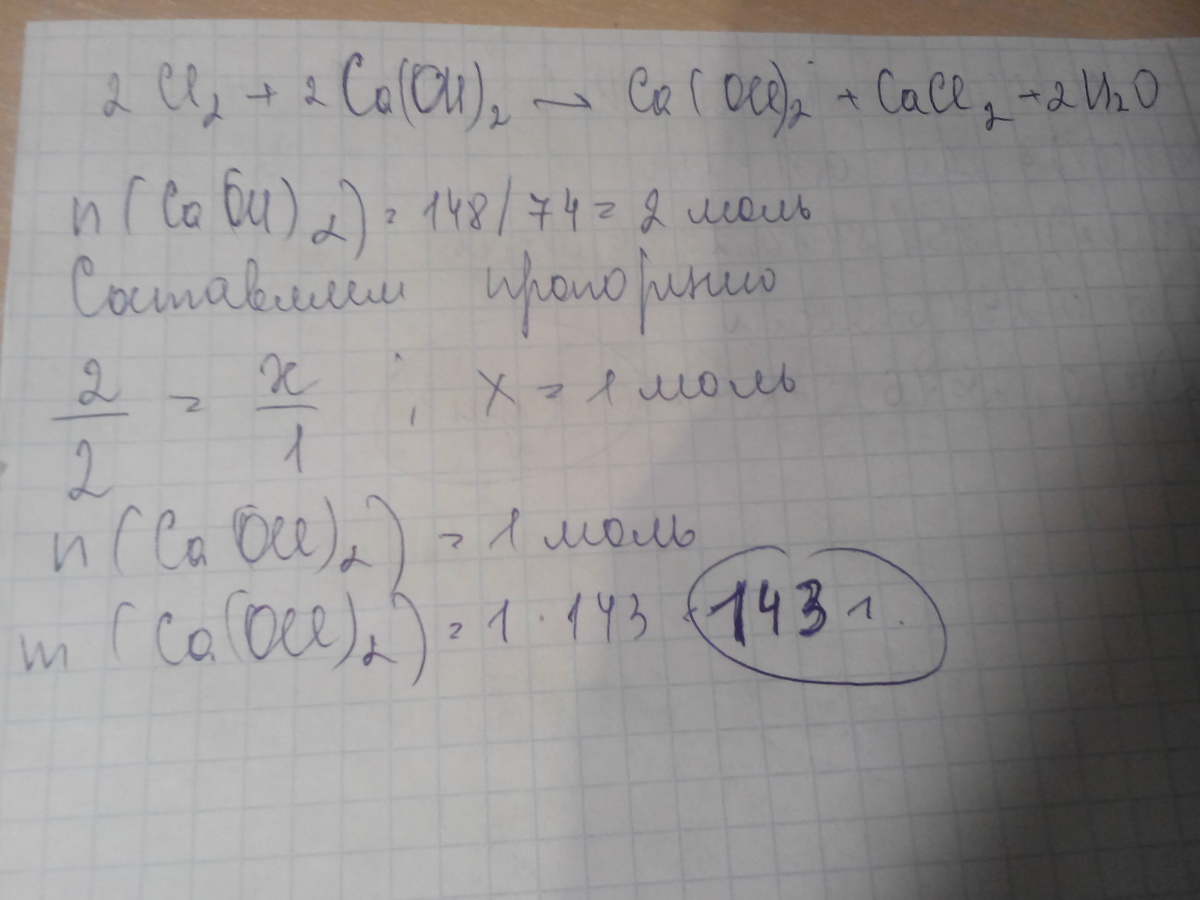 2Cl₂ + 2Ca(OH)₂ → Ca(OCl)₂ + CaCl₂ + 2H₂O
n(Ca(OH)₂) = 148/74 = 2 моль
Составляем пропорцию
2/2 = x/1 ; x = 1 моль
n(Ca(OCl)₂) = 1 моль
m(Ca(OCl)₂) = 1 · 143 = 143 г.